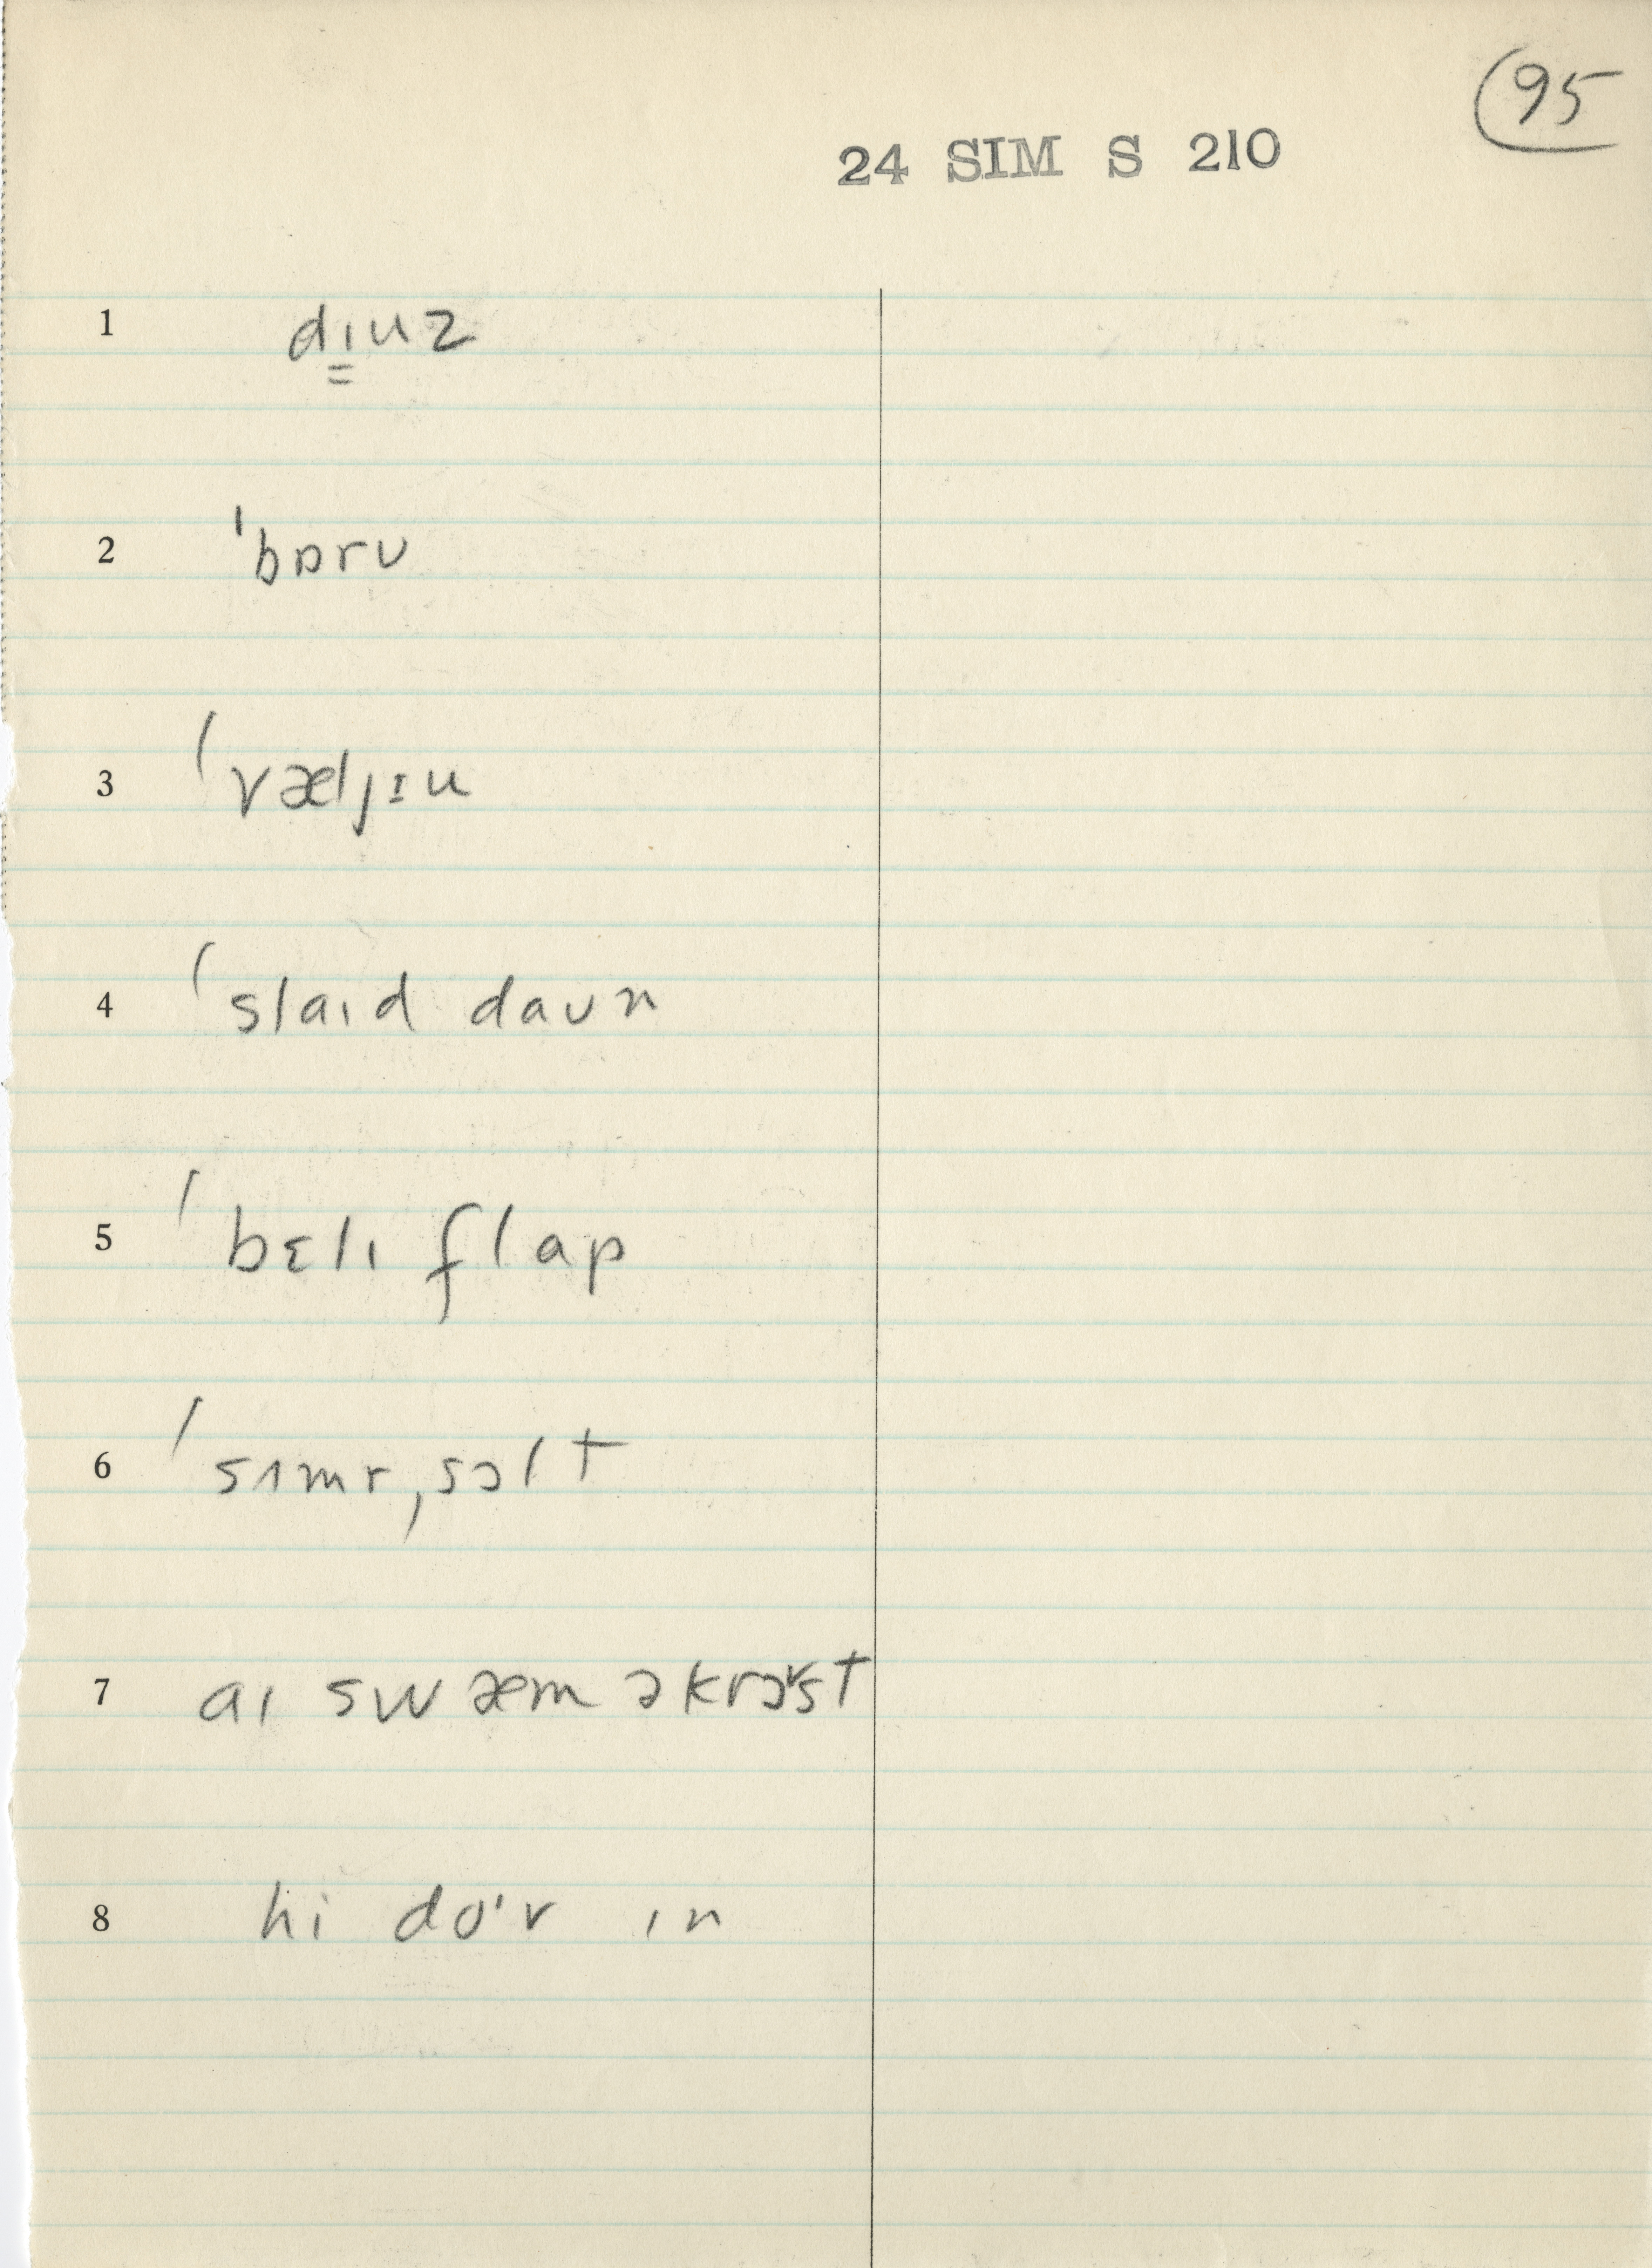 95
24 SIM S 210
1 dɪ̳uz
2 ˈbɒrʊ
3 ˈvæljɪu
4 ˈslaɪd daʊn
5 ˈbɛlɪ flap
6 ˈsʌmrˌsɔlt
7 aɪ swæm əkrɔ˅st
8 hi do'v ɪn